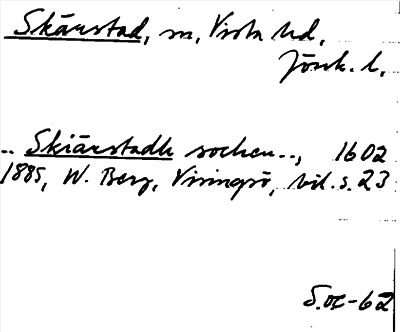 Skärstad, sn, Vista hd,
Jönk. l.
.. Skiärstadh sochen.., 1602
1885, W. Berg, Visingsö, bil. s. 23
S.oc-62